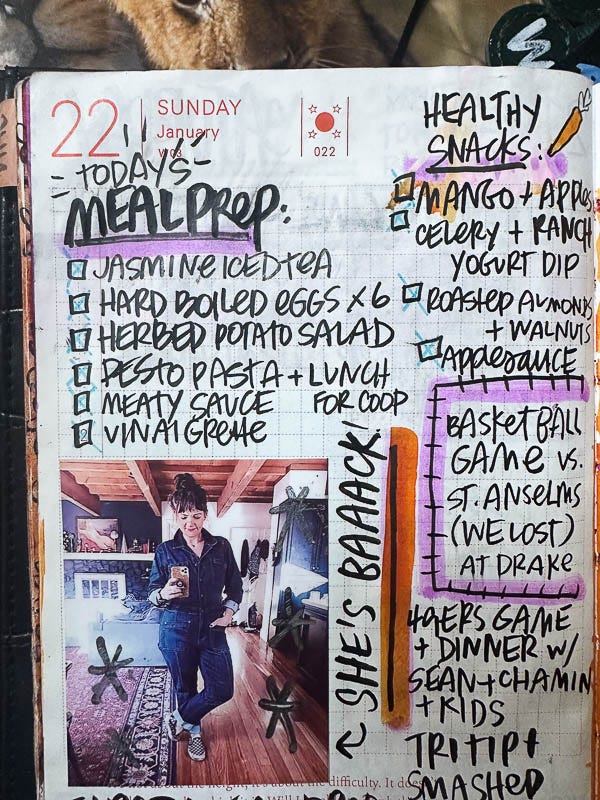 22
SUNDAY
January
W 03
022
TODAYS
MEAL PREP:
JASMINE ICED TEA
HARD BOILED EGGS X 6
HERBED POTATO SALAD
PESTO PASTA + LUNCH
FOR COOP
MEATY SAUCE
VINAIGRETTE
HEALTHY
SNACKS:
MANGO + APPLES
CELERY + RANCH
YOGURT DIP
ROASTED ALMONDS
+ WALNUTS
APPLESAUCE
BASKETBALL
GAME VS.
ST. ANSELMS
(WE LOST)
AT DRAKE
SHE'S BAAACK!
49ERS GAME
+ DINNER W/
SEAN + CHAMIN
+ KIDS
TRI TIP +
SMASHED
about the height, it's about the difficulty. It doesn't